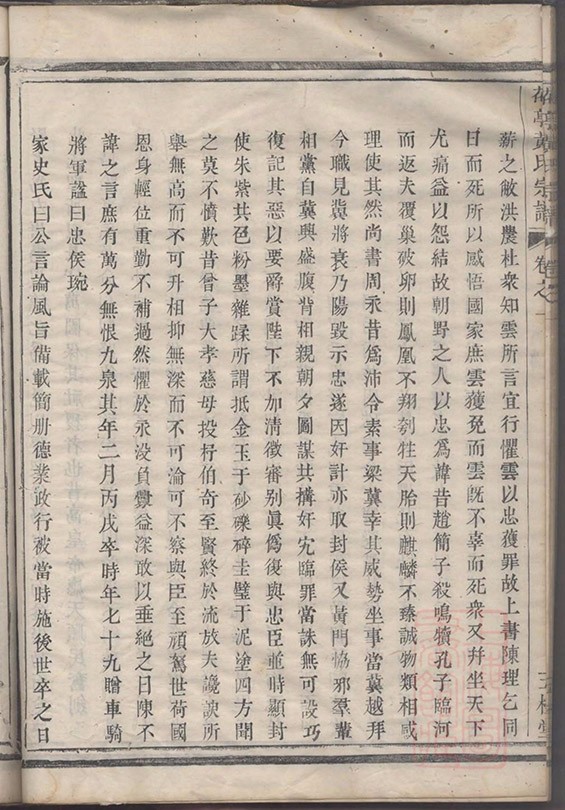 黄氏宗譜 卷之一
薪之敝洪農杜衆知雲所言宜行懼雲以忠獲罪故上書陳理乞同
日而死所以感悟國家庶雲獲免而雲旣不辜而死衆又幷坐天下
尤痛益以怨結故朝野之人以忠爲諱昔趙簡子殺鳴犢孔子臨河
而返夫覆巢破卵則鳳凰不翔刳牲夭胎則麒麟不臻誠物類相感
理使其然尚書周永昔爲沛令素事梁冀幸其威勢坐事當冀越拜
今職見冀將衰乃陽毀示忠遂因奸計亦取封侯又黃門恊邪羣輩
相黨自冀興盛腹背相親朝夕圖謀共搆奸宄臨罪當誅無可設巧
復記其惡以要爵賞陛下不加清徵審别眞僞復與忠臣並時顯封
使朱紫共色粉墨雜蹂所謂抵金玉于砂礫碎圭璧于泥塗四方聞
之莫不憤歎昔曾子大孝慈母投杼伯奇至賢終於流放夫讒諛所
舉無高而不可升相抑無深而不可淪可不察與臣至頑駑世荷國
恩身輕位重勤不補過然懼於永没負釁益深敢以垂絕之日陳不
諱之言庶有萬分無恨九泉其年二月丙戌卒時年七十九贈車騎
將軍謚曰忠侯琬
家史氏曰公言論風旨備載簡册德業政行被當時施後世卒之日